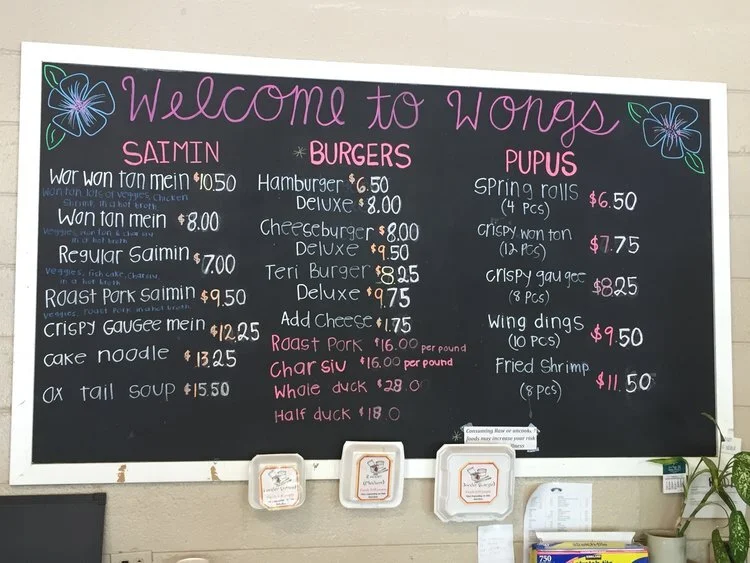 Welcome to Wongs
SAIMIN
War Won ton mein $10.50
Won ton mein $8.00
Regular Saimin $7.00
Veggies, fish cake, Char siu,
in a hot broth
Roast Pork Saimin $9.50
Veggies, roast pork in a hot broth
Crispy Gaugee mein $12.25
Cake noodle $13.25
Ox tail soup $15.50
*BURGERS
Hamburger $6.50
Deluxe $8.00
Cheeseburger $8.00
Deluxe $9.50
Teri Burger $8.25
Deluxe $9.75
Add Cheese $1.75
Roast Pork $16.00 per pound
Char siu $16.00 per pound
Whole duck $28.0
Half duck $18.0
PUPUS
Spring rolls $6.50
(4 Pcs)
Crispy won ton $7.75
(12 Pcs)
Crispy gau gee $8.25
(8 Pcs)
Wing dings $9.50
(10 Pcs)
Fried Shrimp $11.50
(8 Pcs)
*
Consuming Raw or
foods may increase your risk
illness
750